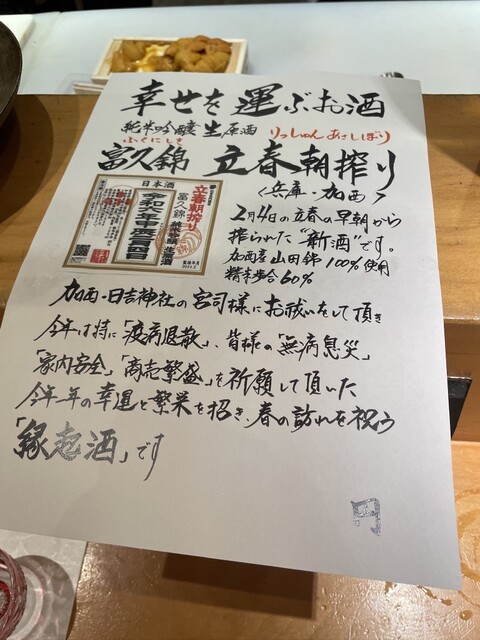 幸せを運ぶお酒
純米吟醸 生原酒 りっしゅんあさしぼり
ふくにしき
富久錦 立春朝搾り
〈兵庫・加西〉
日本酒
立春朝搾り
富久錦 純米吟醸 生原酒
2月4日の立春の早朝から
搾られた"新酒"です。
加西産山田錦100%使用
精米歩合60%
加西・日吉神社の宮司様にお祓いをして頂き
今年は特に「疫病退散」、皆様の「無病息災」
「家内安全」「商売繁盛」を祈願して頂いた
今年一年の幸運と繁栄を招き、春の訪れを祝う
「縁起酒」です
円